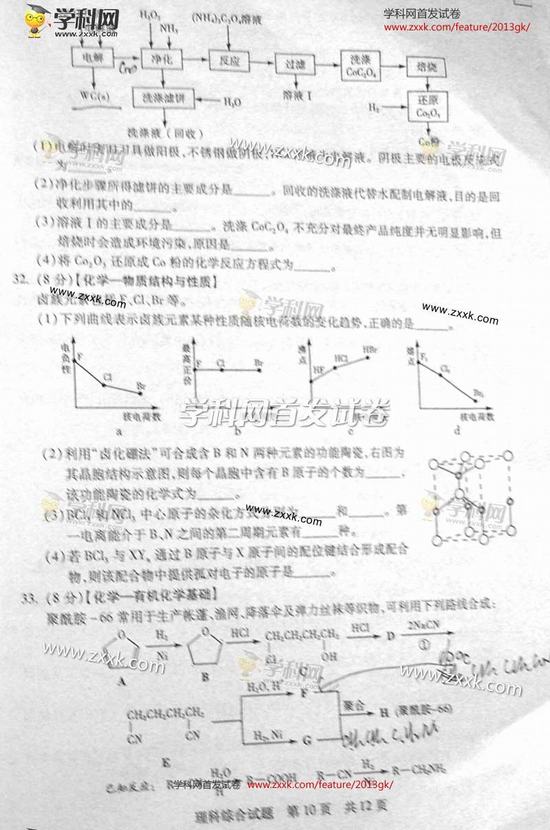 学科网
www.zxxk.com
学科网首发试卷
www.zxxk.com/feature/2013gk/
H₂O₂
NH₃
(NH₄)₂C₂O₄溶液
电解
净化
反应
过滤
洗涤
CoC₂O₄
焙烧
WC(s)
洗涤滤饼
H₂O
溶液Ⅰ
H₂
还原
Co₂O₃
洗涤液(回收)
Co粉
阴极主要的电极反应式
为______。
(2)净化步骤所得滤饼的主要成分是______。回收的洗涤液代替水配制电解液,目的是回
收利用其中的______。
(3)溶液Ⅰ的主要成分是______。洗涤CoC₂O₄不充分对最终产品纯度并无明显影响,但
焙烧时会造成环境污染,原因是______。
(4)将Co₂O₃还原成Co粉的化学反应方程式为______。
32. (8分)【化学—物质结构与性质】
卤族元素包括F、Cl、Br等。
(1)下列曲线表示卤族元素某种性质随核电荷数的变化趋势,正确的是______。
电负性
F
Cl
Br
核电荷数
a
最高正价
F
Cl
Br
b
沸点
HF
HCl
HBr
c
熔点
F₂
Cl₂
核电荷数
d
学科网首发试卷
(2)利用“卤化硼法”可合成含B和N两种元素的功能陶瓷,右图为
其晶胞结构示意图,则每个晶胞中含有B原子的个数为______,
该功能陶瓷的化学式为______。
(3)BCl₃和NCl₃中心原子的杂化方式分别为______和______。第
一电离能介于B、N之间的第二周期元素有______种。
(4)若BCl₃与XYₙ通过B原子与X原子间的配位键结合形成配合
物,则该配合物中提供孤对电子的原子是______。
33. (8分)【化学—有机化学基础】
聚酰胺-66常用于生产帐篷、渔网、降落伞及弹力丝袜等织物,可利用下列路线合成:
H₂
Ni
HCl
CH₂CH₂CH₂CH₂
Cl
OH
HCl
D
2NaCN
①
A
B
C
H₂O, H⁺
F
CH₂CH₂CH₂CH₂
CN
CN
聚合
H (聚酰胺-66)
H₂, Ni
G
E
已知反应:
H₂O
R—COOH
R—CN
H₂
Ni
R—CH₂NH₂
学科网首发试卷
www.zxxk.com/feature/2013gk/
理科综合试题 第10页 共12页